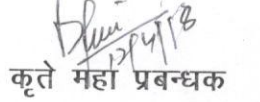 12/4/18
कृते महा प्रबन्धक